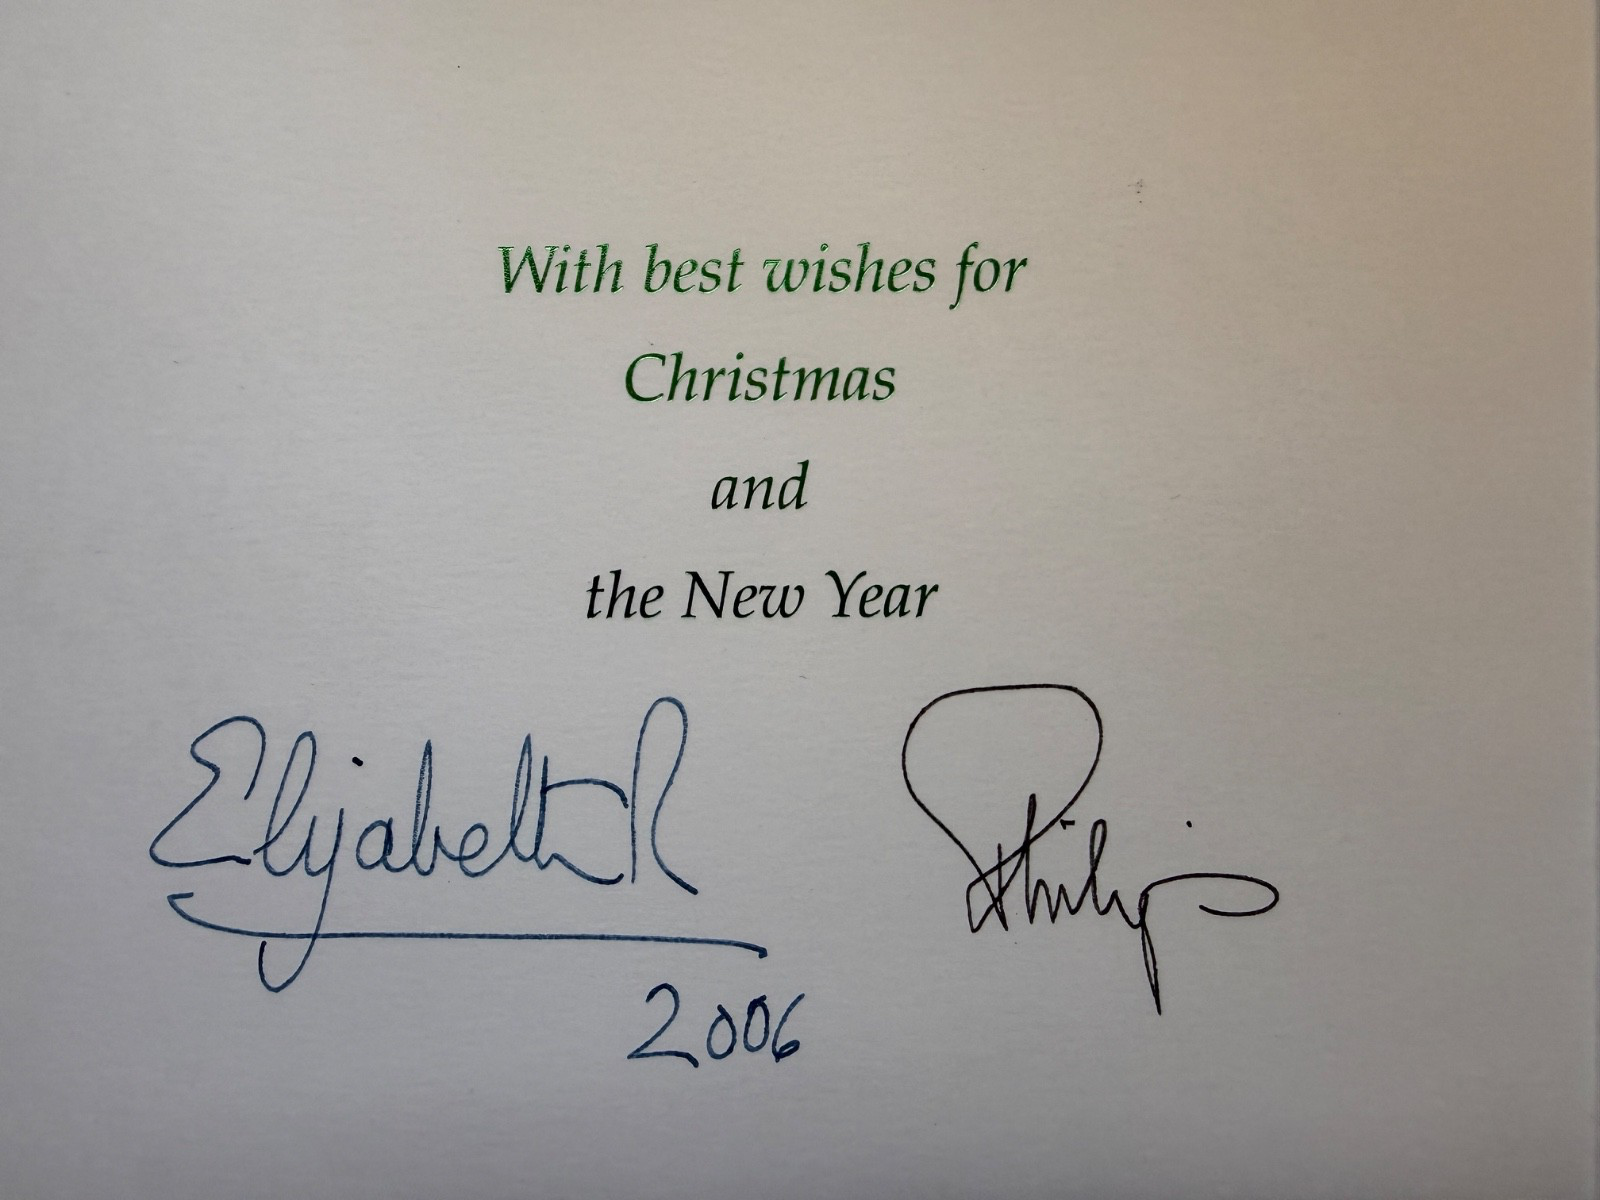 With best wishes for
Christmas
and
the New Year
Elizabeth R
Philip
2006